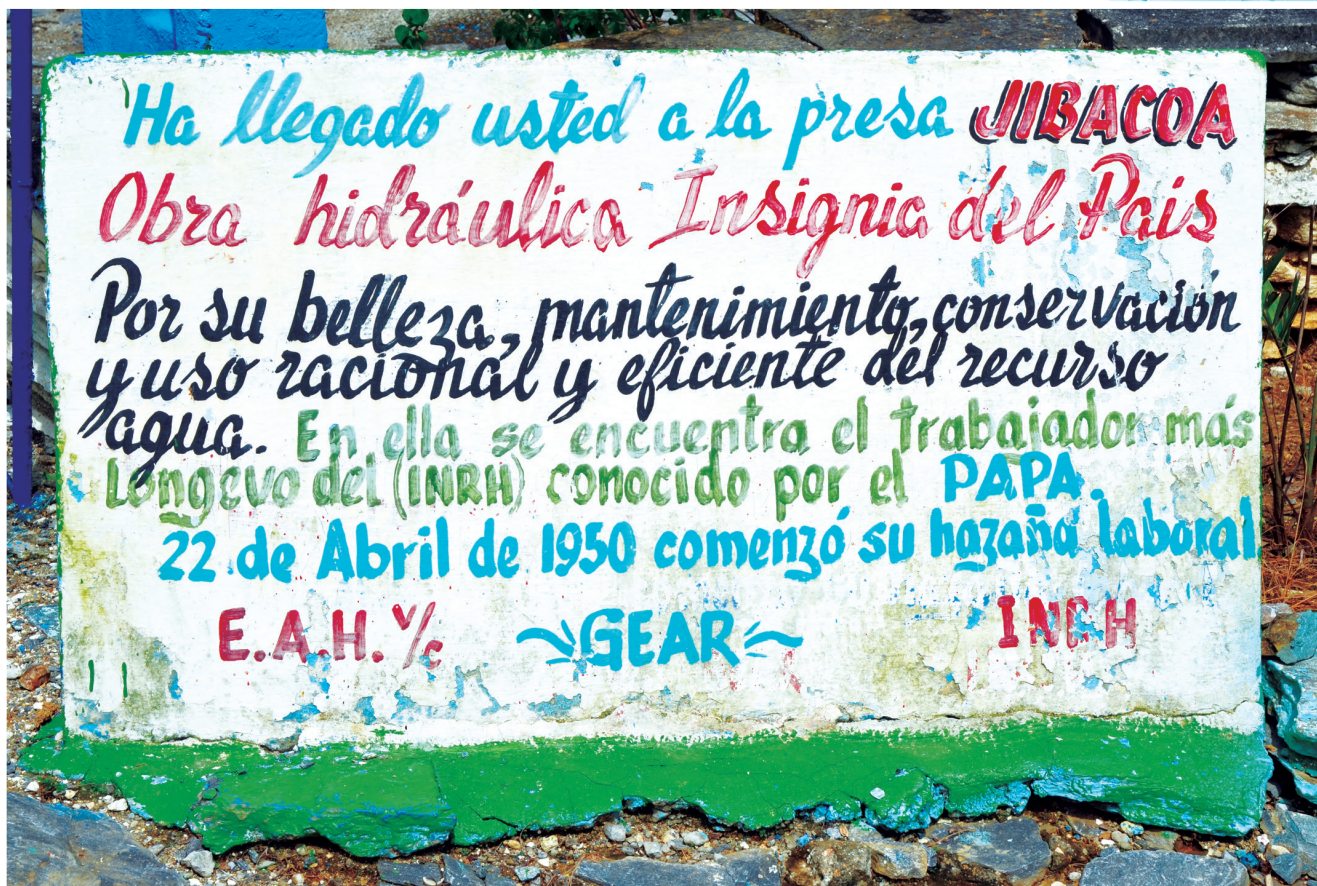 Ha llegado usted a la presa JIBACOA
Obra hidráulica Insignia del País
Por su belleza, mantenimiento, conservación
y uso racional y eficiente del recurso
agua. En ella se encuentra el trabajador más
Longevo del (INRH) conocido por el PAPA.
22 de Abril de 1950 comenzó su hazaña laboral
E.A.H. V/C GEAR INRH